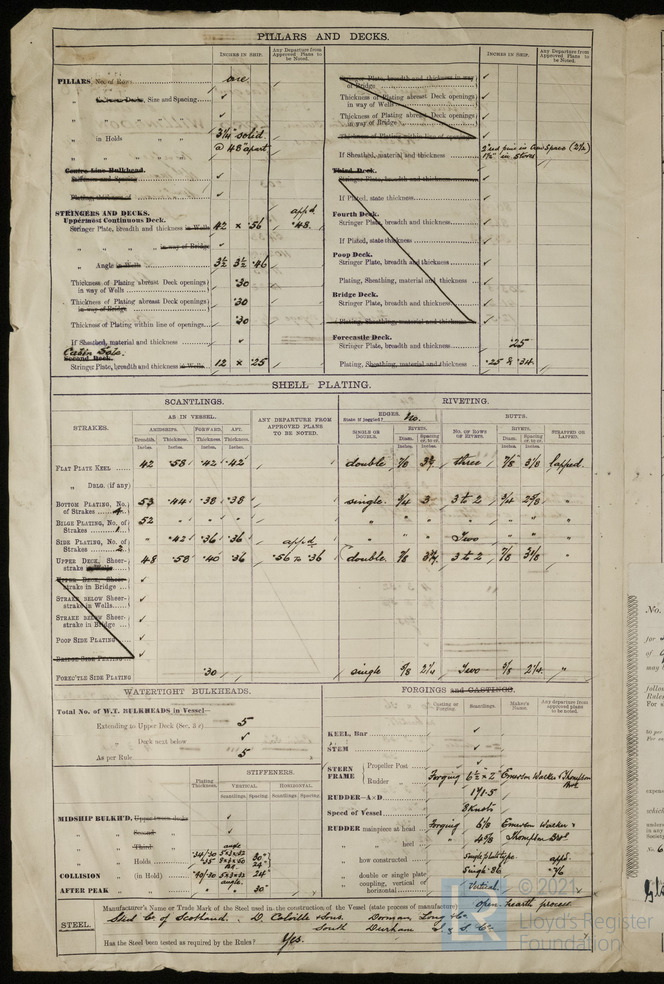 PILLARS AND DECKS.
INCHES IN SHIP. Any Departure from Approved Plans to be Noted. INCHES IN SHIP. Any Departure from Approved Plans to be Noted.
PILLARS, No. of Rows one
" Size and Spacing
" in Holds 3¼" solid
@ 48" apart
Centre Line Bulkhead.
STRINGERS AND DECKS.
Uppermost Continuous Deck. appd
Stringer Plate, breadth and thickness in Wells 42 × ·56 ·48.
" " " in way of Bridge
" Angle in Wells 3½ 3½ ·46
Thickness of Plating abreast Deck openings in way of Wells ·30
Thickness of Plating abreast Deck openings in way of Bridge ·30
Thickness of Plating within line of openings ·30
If Sheathed, material and thickness
Cabin Sole.
Second Deck.
Stringer Plate, breadth and thickness in Wells 12 × ·25
Stringer Plate, breadth and thickness in way of Bridge
Thickness of Plating abreast Deck openings in way of Wells
Thickness of Plating abreast Deck openings in way of Bridge
Thickness of Plating within line of openings
If Sheathed, material and thickness
Third Deck.
Stringer Plate, breadth and thickness
If Plated, state thickness
Fourth Deck.
Stringer Plate, breadth and thickness
If Plated, state thickness
Poop Deck.
Stringer Plate, breadth and thickness
Plating, Sheathing, material and thickness
Bridge Deck.
Stringer Plate, breadth and thickness
Plating, Sheathing, material and thickness
Forecastle Deck.
Stringer Plate, breadth and thickness ·25
Plating, Sheathing, material and thickness ·25 & ·34
SHELL PLATING.
SCANTLINGS. RIVETING.
STRAKES. AS IN VESSEL. ANY DEPARTURE FROM APPROVED PLANS TO BE NOTED. EDGES. No. BUTTS.
State if joggled?
AMIDSHIPS. FORWARD. AFT. SINGLE OR DOUBLE. RIVETS. NO. OF ROWS OF RIVETS. RIVETS. STRAPPED OR LAPPED.
Breadth. Thickness. Thickness. Thickness. Diam. Spacing Diam. Spacing
Inches. Inches. Inches. Inches. Inches. Inches. Inches. Inches.
FLAT PLATE KEEL 42 ·58 ·42 ·42 double 7/8 three 7/8 3 1/8 lapped.
" DBLG. (if any)
BOTTOM PLATING, No. of Strakes 4 53 ·44 ·38 ·38 single 3/4 3 3 to 2 3/4 2 5/8 "
BILGE PLATING, No. of Strakes 1 52 " " " " " " " " " "
SIDE PLATING, No. of Strakes 2 " ·42 ·36 ·36 appd " " " Two " " "
UPPER DECK, Sheerstrake 48 ·58 ·40 ·36 ·56 to ·36 double 7/8 3 to 2 7/8 3 1/8 "
UPPER DECK, Sheerstrake in Bridge
STRAKE BELOW Sheerstrake in Wells
STRAKE BELOW Sheerstrake in Bridge
POOP SIDE PLATING
BRIDGE SIDE PLATING
FORE'C'TLE SIDE PLATING ·30 single 5/8 2 1/4 Two 5/8 2 1/4 "
WATERTIGHT BULKHEADS. FORGINGS and CASTINGS.
Total No. of W.T. BULKHEADS in Vessel—
Extending to Upper Deck 5
" Deck next below
As per Rule 5
STIFFENERS.
Plating Thickness. VERTICAL. HORIZONTAL.
Scantlings. Spacing. Scantlings. Spacing.
MIDSHIP BULKH'D, Upper tween decks
" Second "
" Third " angle
" Holds 30"
24"
COLLISION (in Hold) 24"
angle.
AFTER PEAK " 30"
Casting or Forging. Scantlings. Maker's Name. Any departure from approved plans to be noted.
KEEL, Bar
STEM
STERN FRAME Propeller Post
Rudder Forging 6½ × 2" Emerson Walker & Thompson Bros
RUDDER—A×D 191·5
Speed of Vessel 8 Knots
RUDDER mainpiece at head Forging Emerson Walker &
" heel " Thompson Bros
" how constructed Single plate type appd.
" double or single plate Single ·86
coupling, vertical or horizontal Vertical
STEEL. Manufacturer's Name or Trade Mark of the Steel used in the construction of the Vessel (state process of manufacture) open hearth process
Steel Co of Scotland. D. Colville & Sons. Dorman Long & Co
South Durham S & I Co
Has the Steel been tested as required by the Rules? Yes.
© 2021
Lloyd's Register
Foundation